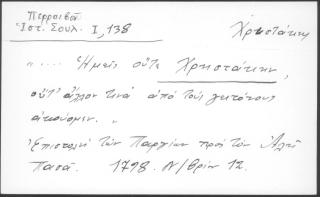 Περραιβοῦ
Ἱστ. Σουλ. Ι, 138
Χρηστάκης
"... Ἡμεῖς οὔτε Χρηστάκην,
οὔτ' ἄλλον τινά ἀπό τούς γείτονας
ἀκούομεν. "
Ἐπιστολή τῶν Παργίων πρός τόν Ἀλῆ
Πασᾶ. 1798. Ν/βρίου 12.